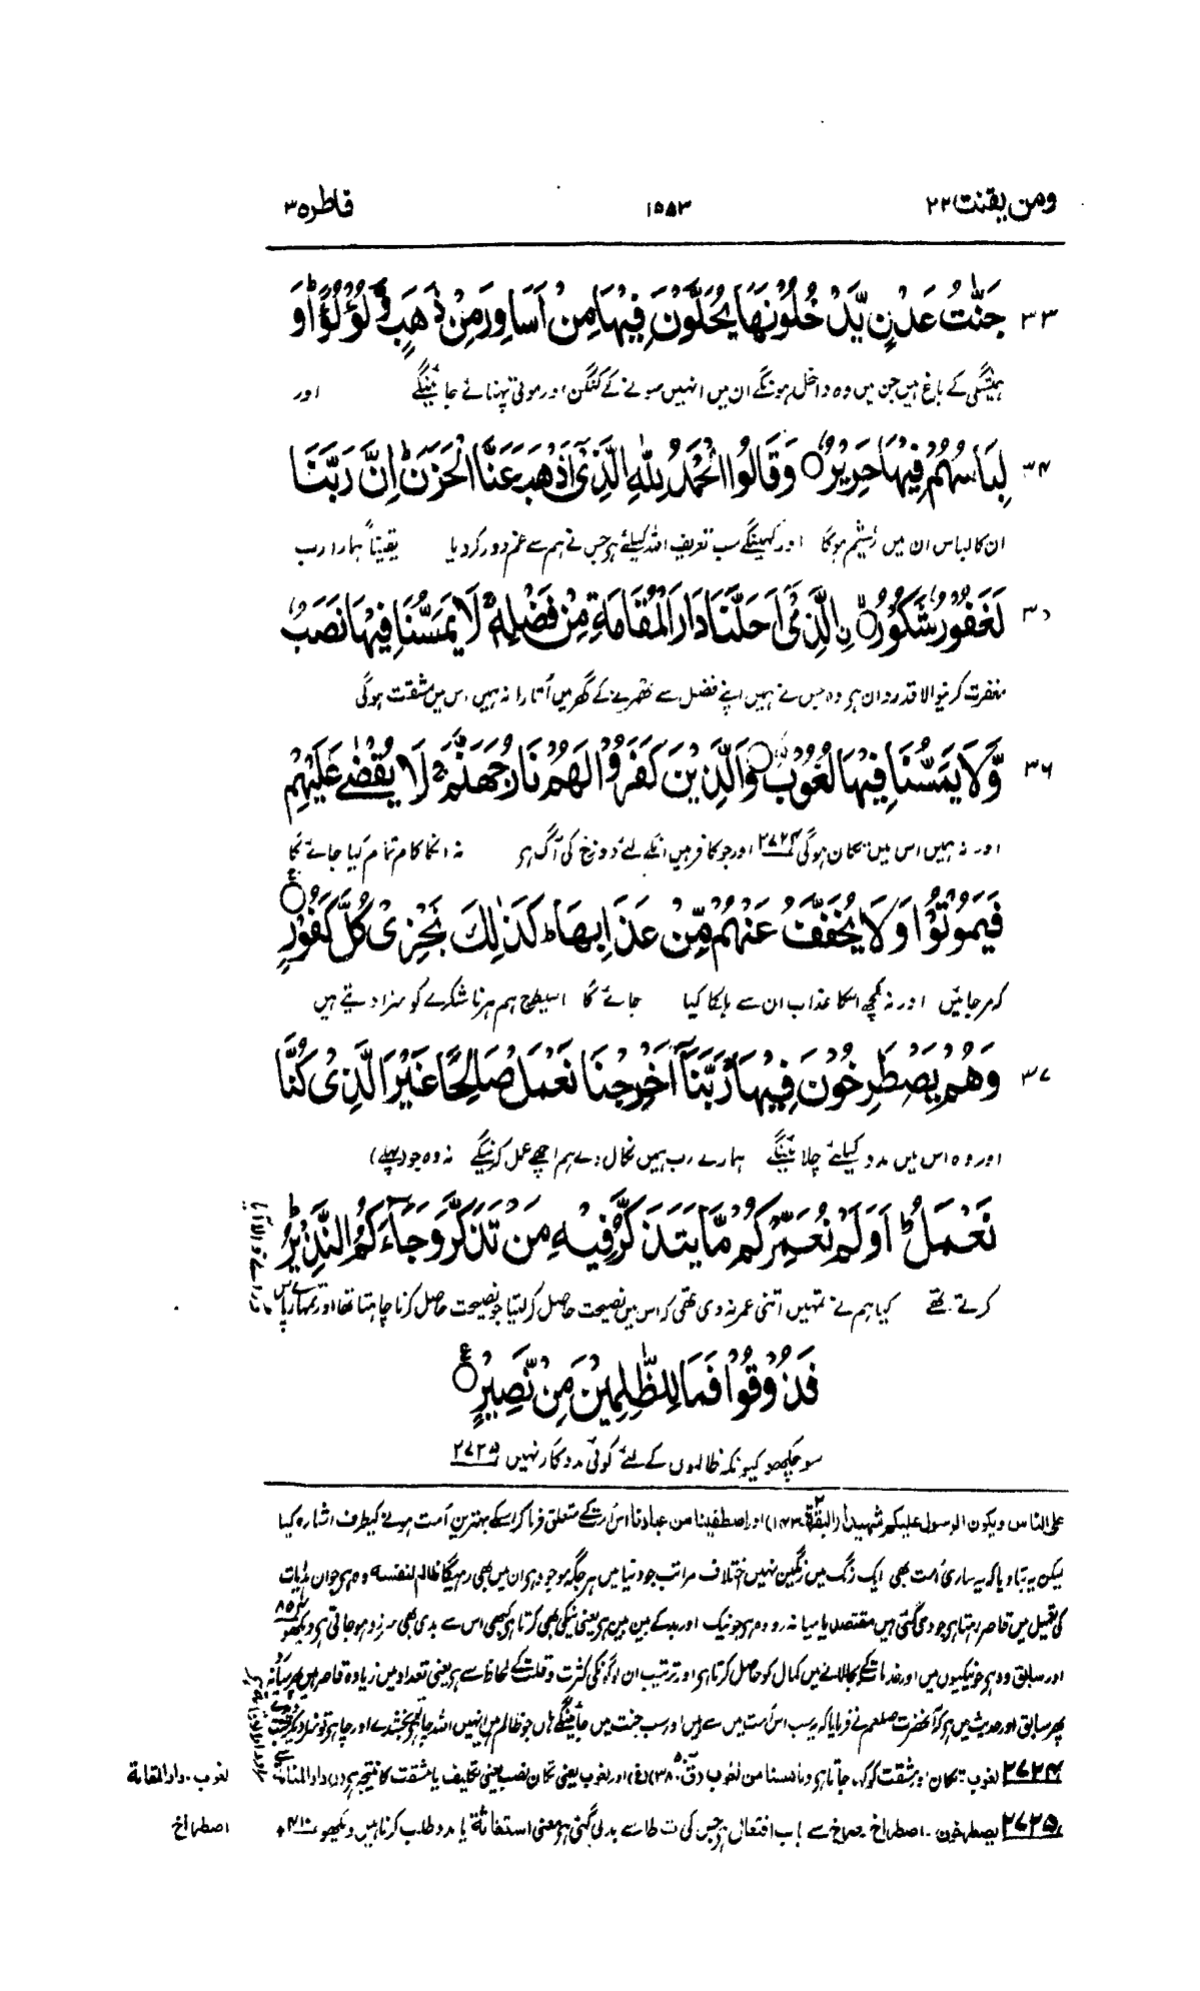 ومن یقنت ۲۲ ۱۵۵۳ فاطر ۳۵
۳۳ جَنّٰتُ عَدْنٍ یَّدْخُلُوْنَهَا یُحَلَّوْنَ فِیْهَا مِنْ اَسَاوِرَ مِنْ ذَهَبٍ وَّ لُؤْلُؤًا ۚ وَ
ہمیشگی کے باغ ہیں جن میں وہ داخل ہونگے ان میں انہیں سونے کے کنگن اور موتی پہنائے جائینگے اور
۳۴ لِبَاسُهُمْ فِیْهَا حَرِیْرٌ ۝ وَ قَالُوا الْحَمْدُ لِلّٰهِ الَّذِیْۤ اَذْهَبَ عَنَّا الْحَزَنَ ؕ اِنَّ رَبَّنَا
ان کا لباس ان میں ریشم ہوگا اور کہینگے سب تعریف اللہ کیلئے ہے جس نے ہم سے غم دور کر دیا یقیناً ہمارا رب
۳۵ لَغَفُوْرٌ شَكُوْرُ ۝ ِ۟الَّذِیْۤ اَحَلَّنَا دَارَ الْمُقَامَةِ مِنْ فَضْلِهٖ ۚ لَا یَمَسُّنَا فِیْهَا نَصَبٌ
مغفرت کرنیوالا قدردان ہے وہ جس نے ہمیں اپنے فضل سے ٹھہرنے کے گھر میں اُتارا نہ ہمیں اس میں مشقت ہوگی
۳۶ وَّ لَا یَمَسُّنَا فِیْهَا لُغُوْبٌ ۝ وَ الَّذِیْنَ كَفَرُوْا لَهُمْ نَارُ جَهَنَّمَ ۚ لَا یُقْضٰی عَلَیْهِمْ
اور نہ ہمیں اس میں تکان ہوگی ۲۷۲۴ اور جو کافر ہیں انکے لئے دوزخ کی آگ ہے نہ انکا کام تمام کیا جائے گا
فَیَمُوْتُوْا وَ لَا یُخَفَّفُ عَنْهُمْ مِّنْ عَذَابِهَا ؕ كَذٰلِكَ نَجْزِیْ كُلَّ كَفُوْرٍ ۝
کہ مر جائیں اور نہ کچھ اسکا عذاب ان سے ہلکا کیا جائے گا اسیطرح ہم ہر ناشکرے کو سزا دیتے ہیں
۳۷ وَ هُمْ یَصْطَرِخُوْنَ فِیْهَا ۚ رَبَّنَاۤ اَخْرِجْنَا نَعْمَلْ صَالِحًا غَیْرَ الَّذِیْ كُنَّا
اور وہ اس میں مدد کیلئے چلائینگے ہمارے رب ہمیں نکال دے ہم اچھے عمل کرینگے نہ وہ جو (پہلے)
نَعْمَلُ ؕ اَوَ لَمْ نُعَمِّرْكُمْ مَّا یَتَذَكَّرُ فِیْهِ مَنْ تَذَكَّرَ وَ جَآءَكُمُ النَّذِیْرُ ؕ
کرتے تھے کیا ہم نے تمہیں اتنی عمر نہ دی تھی کہ اس میں نصیحت حاصل کر لیتا جو نصیحت حاصل کرنا چاہتا تھا اور تمہارے پاس ڈرانے والا آیا
فَذُوْقُوْا فَمَا لِلظّٰلِمِیْنَ مِنْ نَّصِیْرٍ ۝
سو چکھو کیونکہ ظالموں کے لئے کوئی مددگار نہیں ۲۷۲۵
علی الناس ویکون الرسول علیکم شہیدا (البقرۃ ۲-۱۴۳) اور اصطفینا من عبادنا اس اُمت کے متعلق فرما کر اسکے بہترین اُمت ہونے کیطرف اشارہ کیا
لیکن یہ بتا دیا کہ یہ ساری اُمت بھی ایک رنگ میں رنگین نہیں اختلاف مراتب جو دنیا میں ہر جگہ موجود ہے ان میں بھی رہیگا ظالم لنفسہ وہ ہے جو ان ہدایات
کی تعمیل میں قاصر رہتا ہے جو دی گئی ہیں مقتصد یا میانہ رو وہ ہے جو نیک اور بد کے بین بین ہے یعنی نیکی بھی کرتا ہے کبھی اس سے بدی بھی سرزد ہو جاتی ہے دیکھو
اور سابق وہ ہے جو نیکیوں میں اور خدمات کے بجا لانے میں کمال کو حاصل کرتا ہے اور ترتیب ان لوگوں کی کثرت و قلت کے لحاظ سے ہے یعنی تعداد میں زیادہ قاصر ہیں پھر میانہ رو
پھر سابق اور حدیث میں ہے کہ آنحضرت صلعم نے فرمایا کہ یہ سب اس اُمت میں سے ہیں اور سب جنت میں جائینگے ہاں جو ظالم ہیں انہیں اللہ چاہے تو بخشدے اور چاہے تو سزا دیکر
۲۷۲۴ لغوب۔ تکان اور مشقت کو کہا جاتا ہے وما مسنا من لغوب (قٓ ۵۰۔۳۸) (غ) اور لغوب یعنی تکان نصب یعنی تکلیف یا مشقت کا نتیجہ ہے (ر) دار المقامۃ لغوب۔ دار المقامۃ
۲۷۲۵ یصطرخون۔ اصطراخ صراخ سے باب افتعال ہے جس کی ت ط سے بدلی گئی ہے معنی استغاثۃ یا مدد طلب کرنا ہیں دیکھو اصطراخ